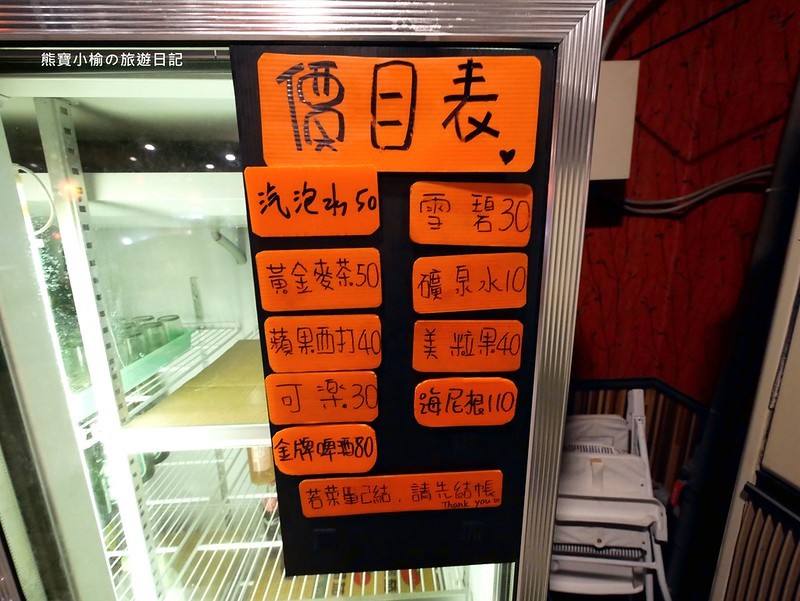 熊寶小榆の旅遊日記
價目表
汽泡水50
雪碧30
黃金麥茶50
礦泉水10
蘋果西打40
美粒果40
可樂30
海尼根110
金牌啤酒80
若菜單已結，請先結帳
Thank you